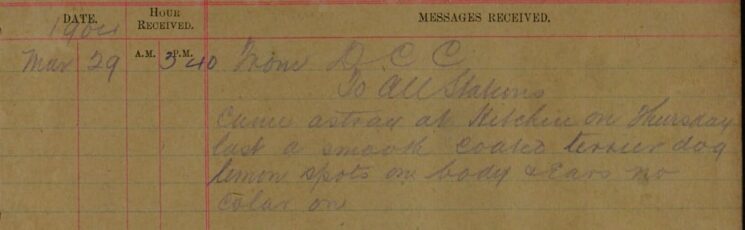 DATE. HOUR RECEIVED. MESSAGES RECEIVED.
1904
A.M. P.M.
Mar 29 3 40 From D C C
To All Stations
Came astray at Kitchen on Thursday
last a smooth coated terrier dog
lemon spots on body & Ears no
Colar on